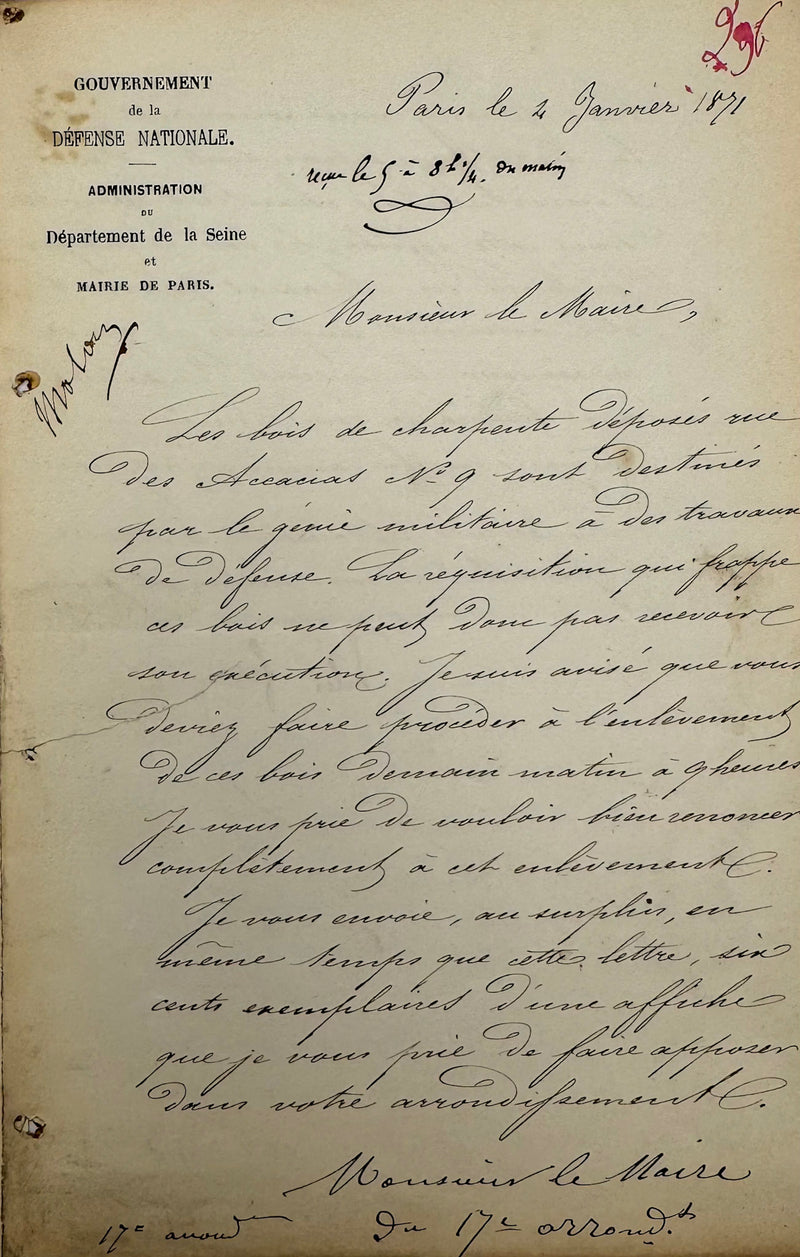 296
GOUVERNEMENT
de la
DÉFENSE NATIONALE.
ADMINISTRATION
DU
Département de la Seine
et
MAIRIE DE PARIS.
Paris le 4 Janvier 1871
reçue le 5 à 8h 1/4. du matin
Monsieur le Maire,
Malon
Les bois de charpente déposés rue
des Accacias No 9 sont destinés
par le génie militaire à des travaux
de défense. La réquisition qui frappe
ces bois ne peut donc pas recevoir
son exécution. Je suis avisé que vous
deviez faire procéder à l'enlèvement
de ces bois demain matin à 9 heures
Je vous prie de vouloir bien renoncer
complètement à cet enlèvement.
Je vous envoie, au surplus, en
même temps que cette lettre, six
cents exemplaires d'une affiche
que je vous prie de faire apposer
dans votre arrondissement.
Monsieur le Maire
du 17e arrondt.
17e arrond